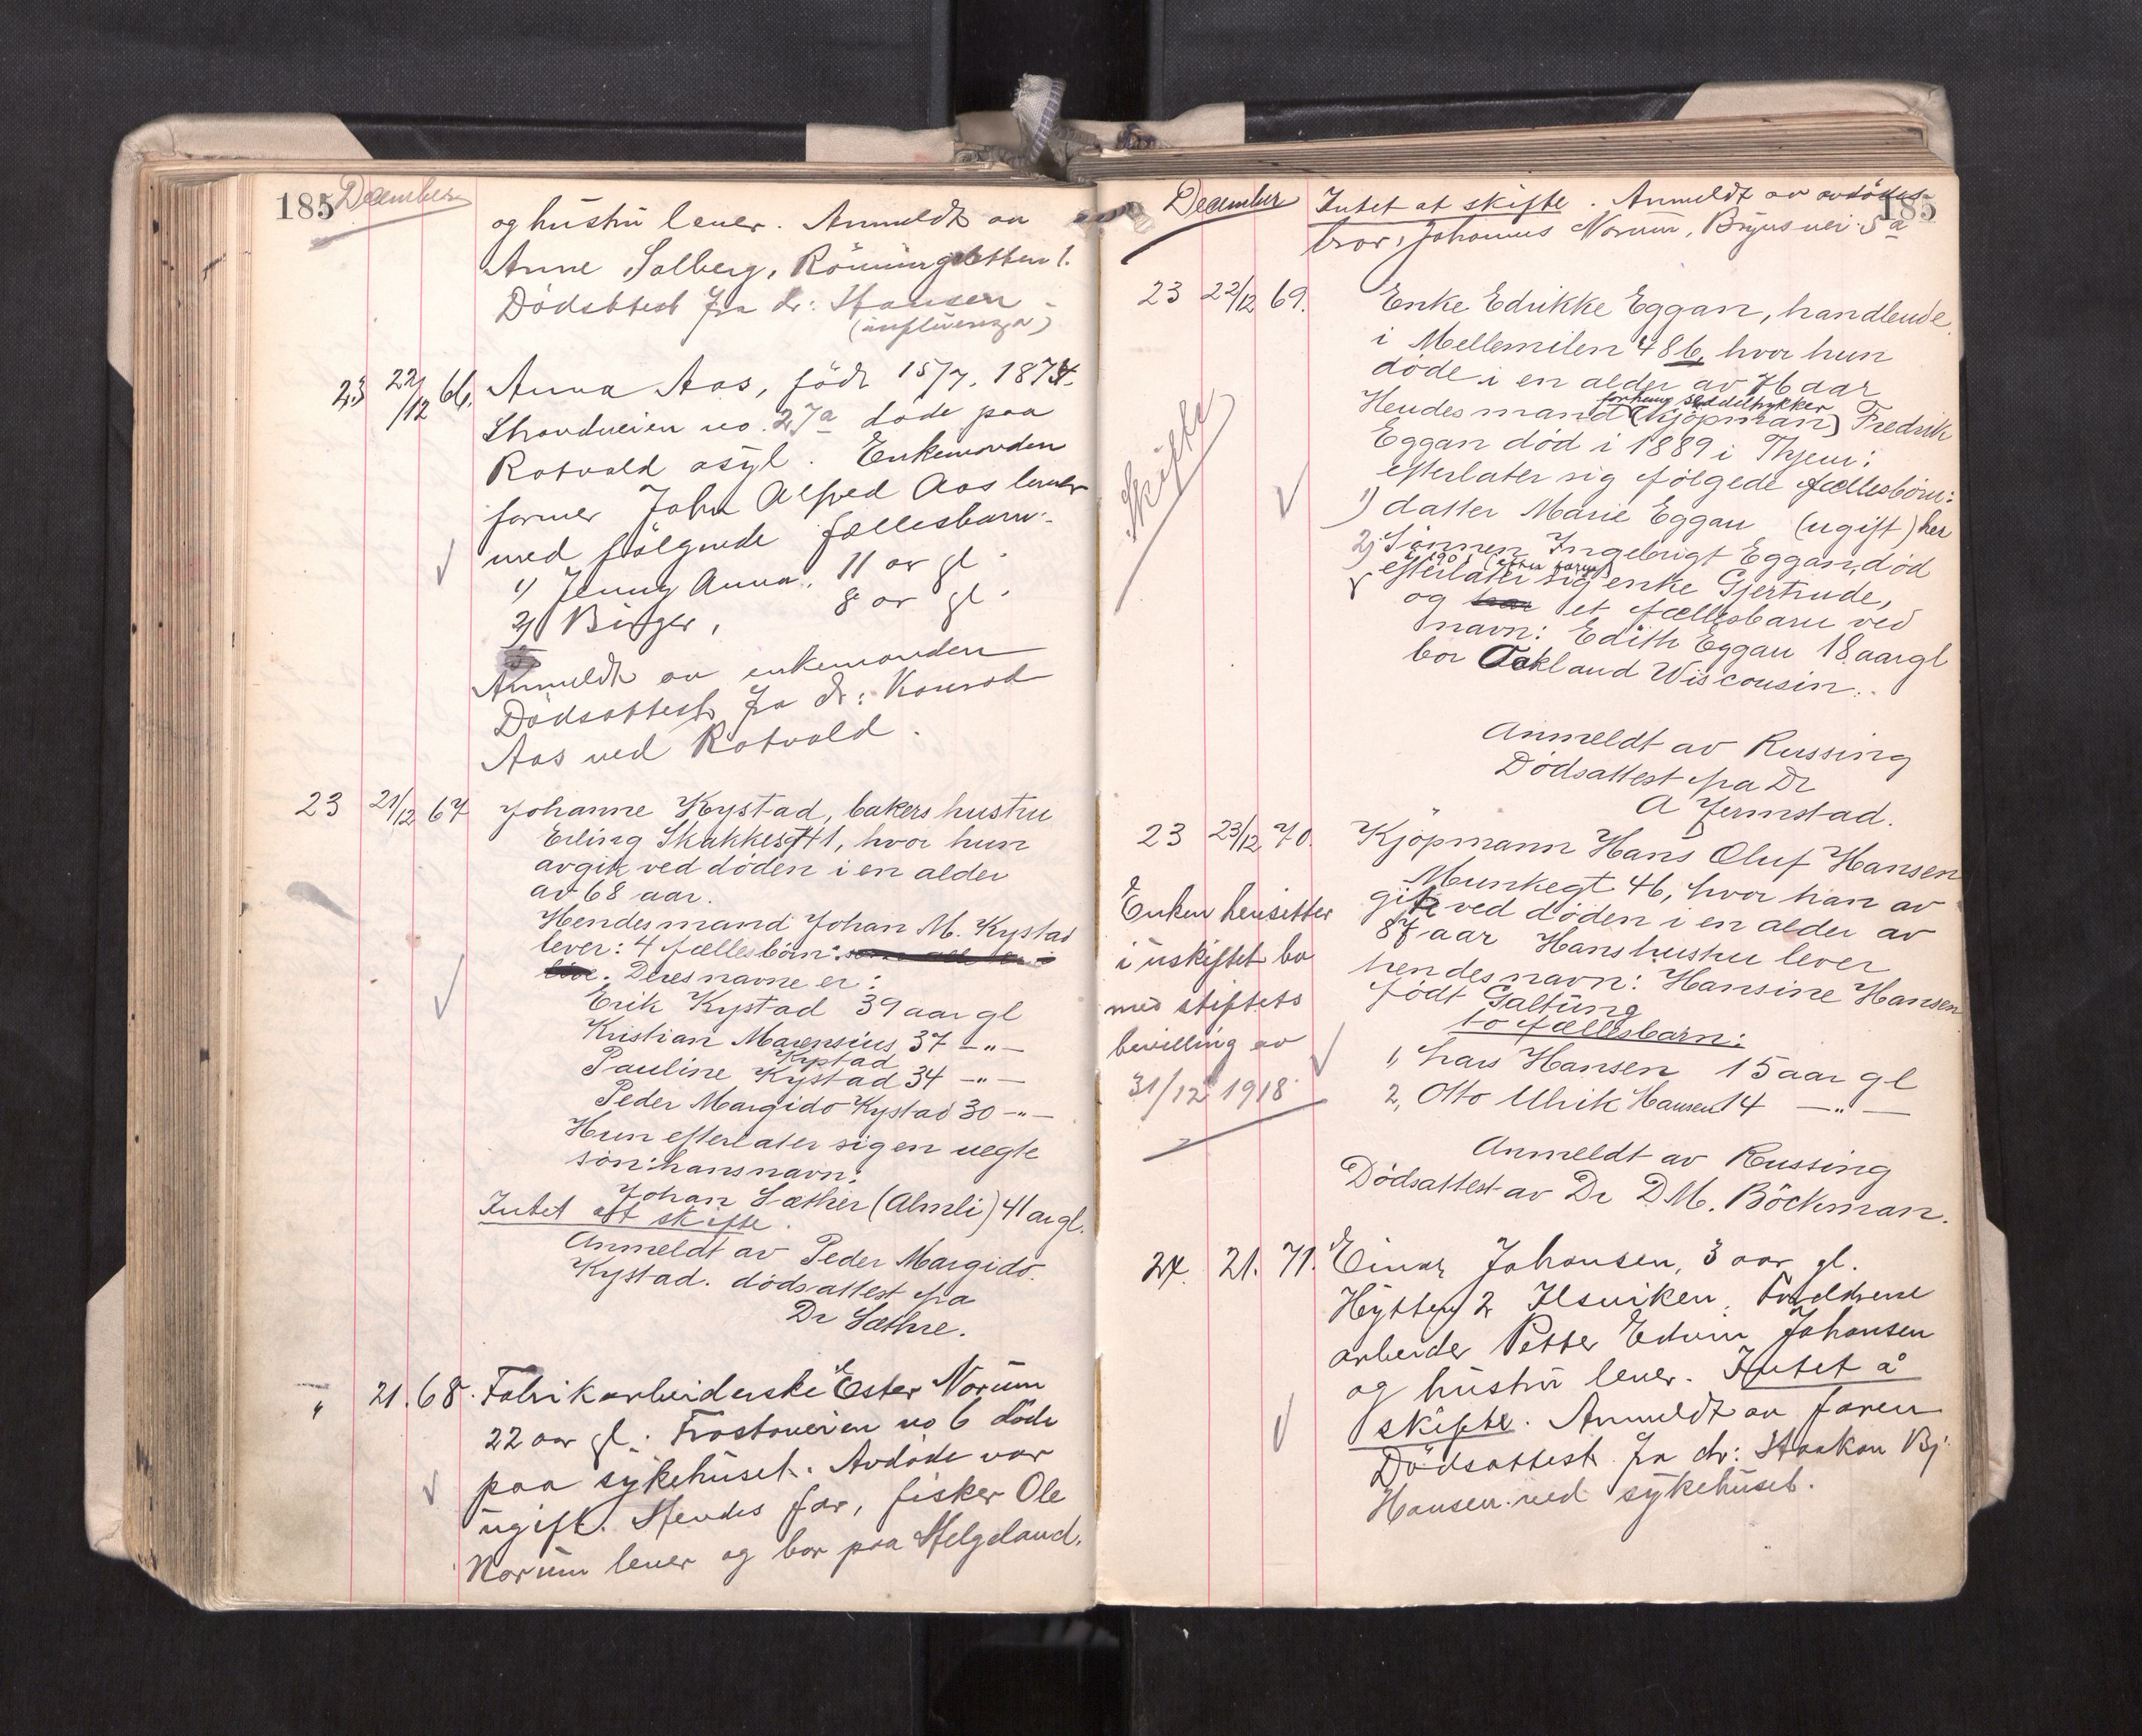 185 December
og hustru lever. Anmeldt av
Anne Solberg, Rönningsletten 1.
Dödsattest fra dr: Hansen
(influensa)
23 22/12 66. Anna Aas, född 15/7. 1874.
Strandveien no. 27a döde paa
Rotvold asyl. Enkemanden
former John Alfred Aas lever
med fölgende fællesbarn:
1) Jenny Anna, 11 ar gl.
2) Birger, 8 ar gl.
Anmeldt av enkemanden
Dödsattest fra dr: Konrad
Aas ved Rotvold.
23 21/12 67 Johanne Kystad, bakers hustru
Erling Skakkesgt 41, hvor hun
avgik ved döden i en alder
av 68 aar.
Hendes mand Johan M. Kystad
lever: 4 fællesbörn:
Deres navne er:
Erik Kystad 39 aar gl
Kristian Marensius 37 —"—
Kystad
Pauline Kystad 34 —"—
Peder Margido Kystad 30 —"—
Hun efterlater sig en uegte
sön: hans navn:
Johan Sæther (Almli) 41 ar gl.
Intet att skifte.
Anmeldt av Peder Margido
Kystad. dödsattest fra
Dr Sæthre.
" 21. 68. Fabrikarbeiderske Ester Norum
22 aar gl. Frostaveien no 6 döde
paa sykehuset. Avdöde var
ugift. Hendes far, fisker Ole
Norum lever og bor paa Helgeland.
December 185
Intet at skifte. Anmeldt av avdödes
bror, Johannes Norum, Bynesvei 5a
23 22/12 69. Enke Edrikke Eggan, handlende
i Mellemilen 48b, hvor hun
döde i en alder av 76 aar
forhenv. seddeltrykker
Hendes mand (Kjöpman) Fredrik
Eggan död i 1889 i Thjem:
efterlater sig fölgede fællesbörn:
1) datter Marie Eggan (ugift) her
2) Sönnen Ingebrigt Eggan, död
efterlater sig enke Gjertrude,
og et fællesbarn ved
navn: Edith Eggan 18 aar gl
bor Oakland Wisconsin.
Skifte
Anmeldt av Russing
Dödsattest fra Dr
A Jermstad.
23 23/12 70. Kjöpmann Hans Oluf Hansen
Munkegt 46, hvor han av
gik ved döden i en alder av
87 aar Hans hustru lever
hendes navn: Hansine Hansen
födt Galtung
to fællesbarn:
1, Lars Hansen 15 aar gl
2, Otto Ulrik Hansen 14 —"—
Enken hensitter
i uskiftet bo
med stiftets
bevilling av
31/12 1918.
Anmeldt av Russing
Dödsattest av Dr D.M. Böckman.
24. 21. 71. Einar Johansen, 3 aar gl.
Hytteg 2 Ilsviken. Forældrene
arbeider Petter Edvin Johansen
og hustru lever. Intet å
skifte. Anmeldt av faren
Dödsattest fra dr: Haakon Bj.
Hansen ved sykehuset.